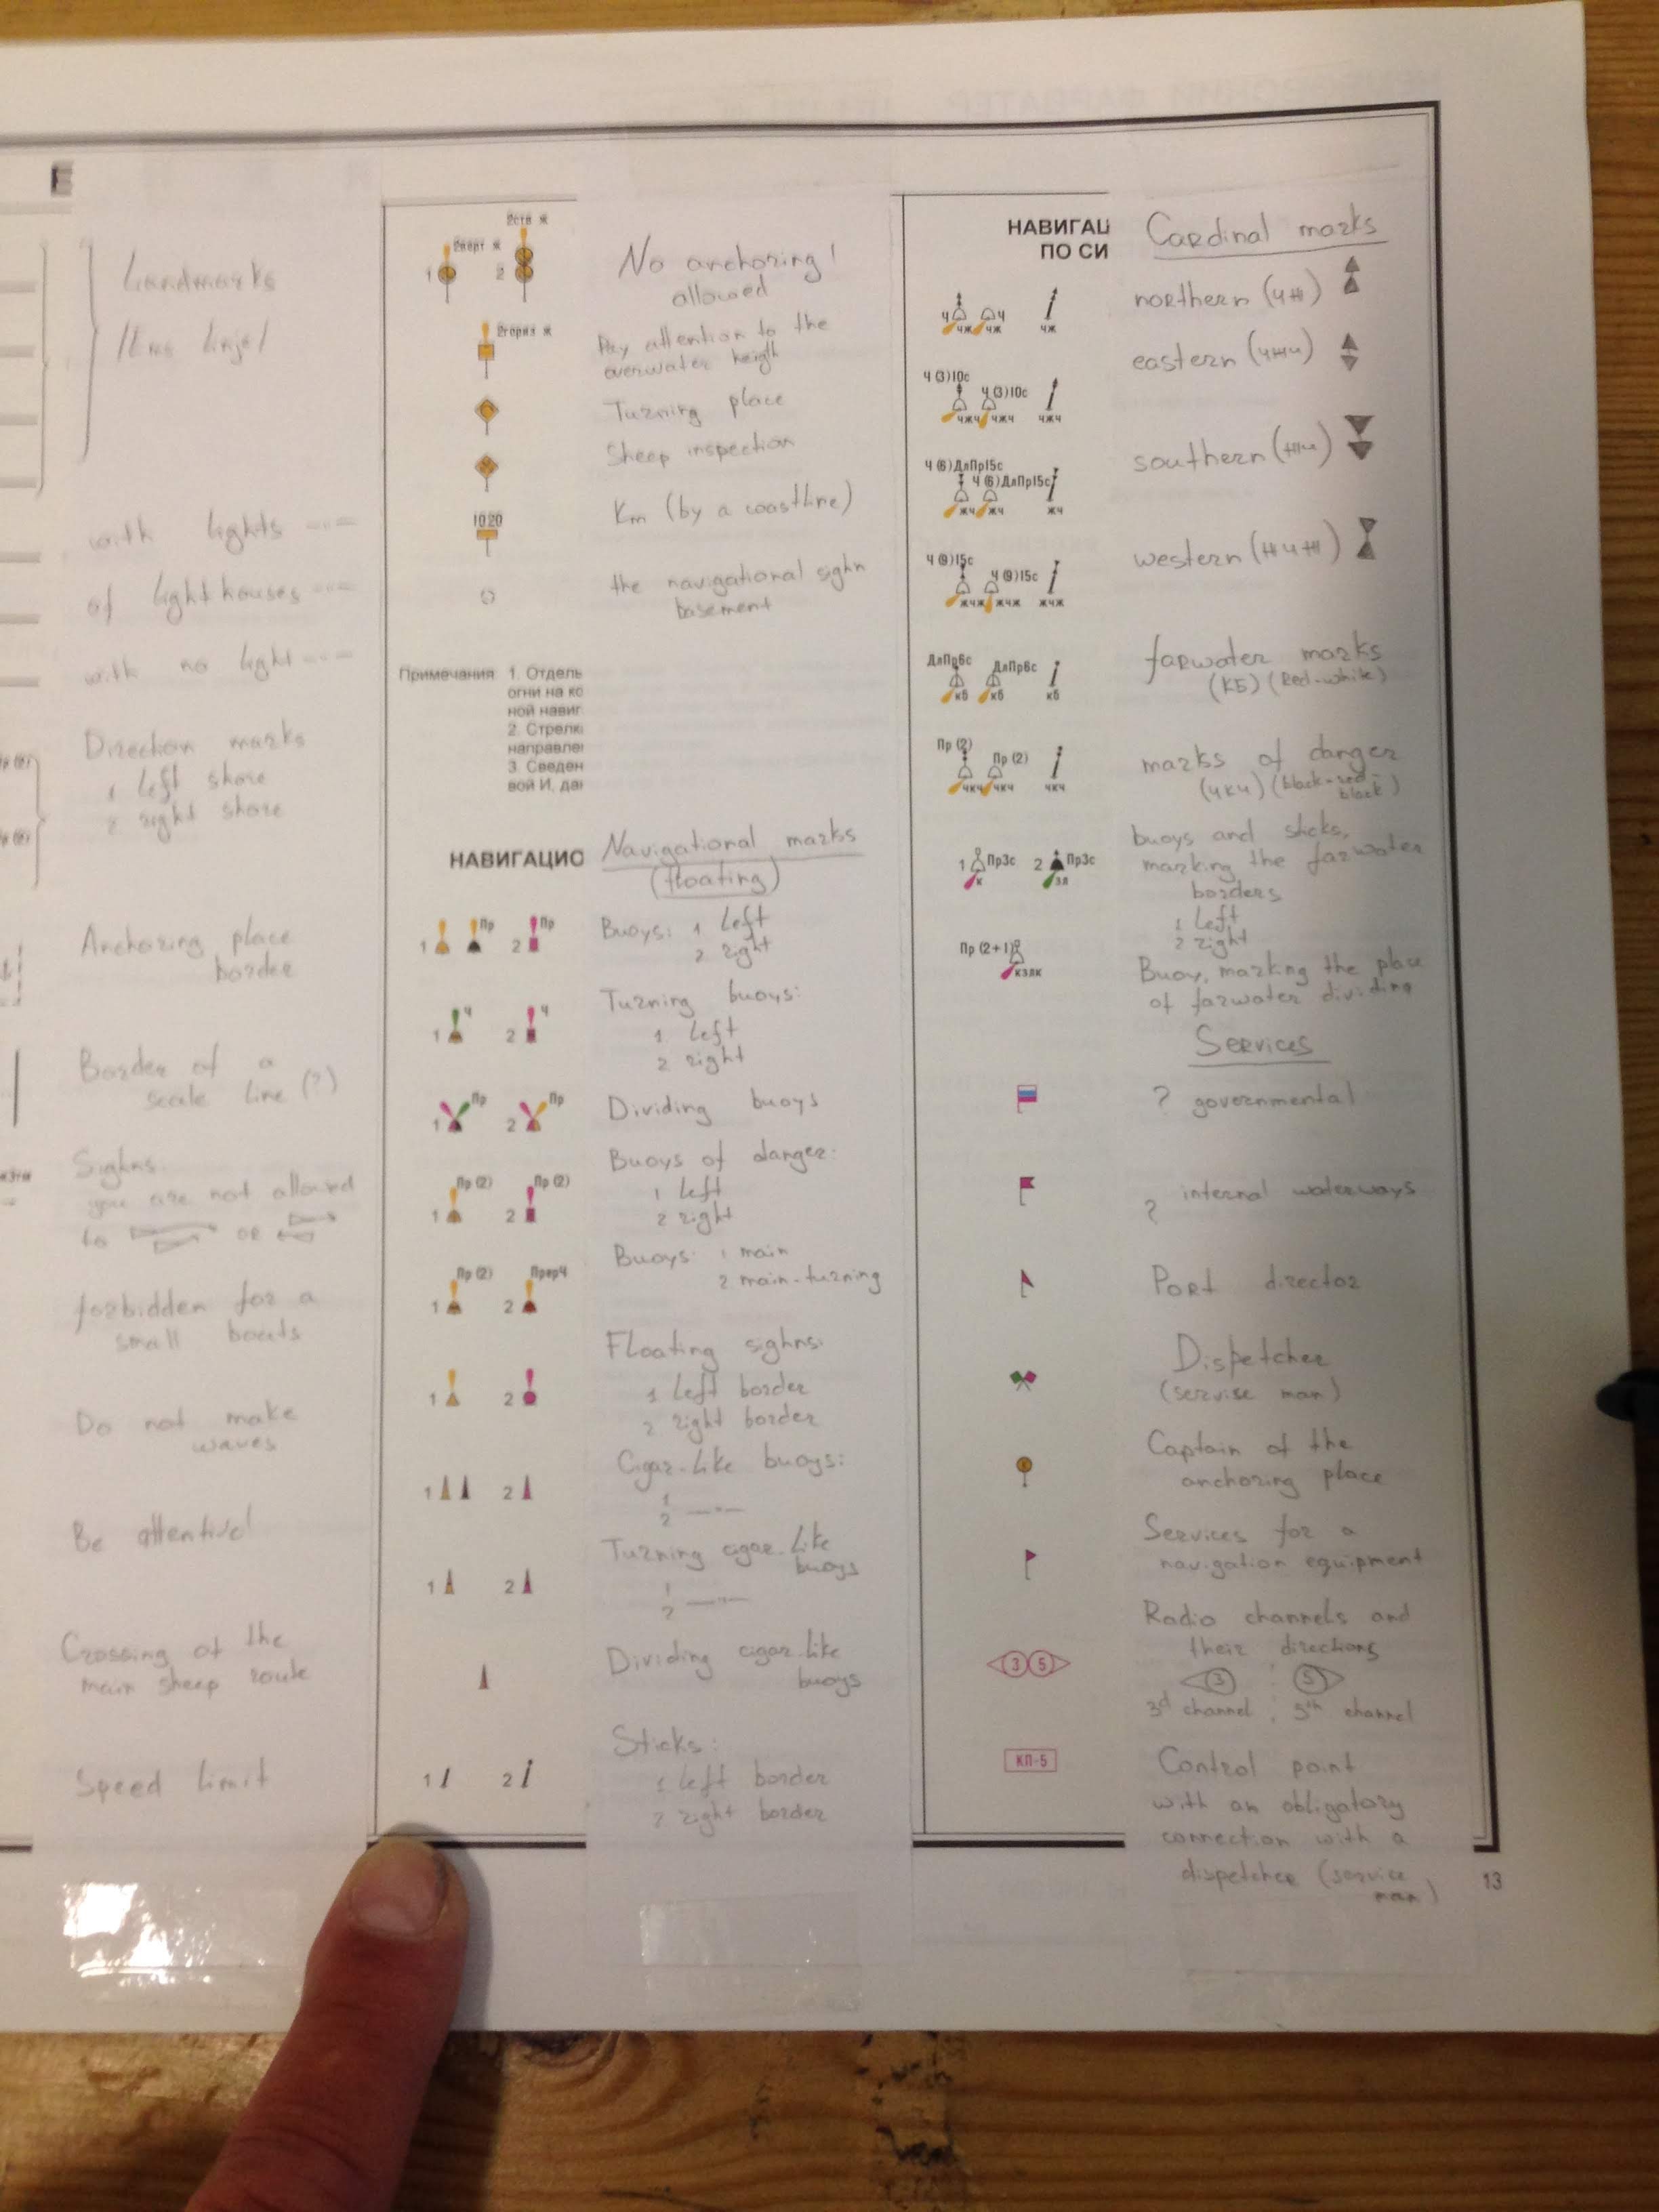 Е
Landmarks
with lights
of lighthouses
with no light
Direction marks
1 left shore
2 right shore
Anchoring place
border
Border of a
scale line (?)
Sighns
you are not allowed
to
or
forbidden for a
small boats
Do not make
waves
Be attentive!
Crossing of the
main sheep route
Speed limit
2ств ж
2верт ж
1
2
No anchoring!
allowed
2гориз ж
Pay attention to the
overwater heigth
Turning place
Sheep inspection
1020
Km (by a coastline)
the navigational sighn
basement
Примечания: 1. Отдель
огни на ко
ной навиг
2. Стрелк
направле
3. Сведен
вой И, да
НАВИГАЦИО
Navigational marks
(floating)
1 Пр 2 Пр
Buoys: 1 left
2 right
1 Ч 2 Ч
Turning buoys:
1 left
2 right
1 Пр 2 Пр
Dividing buoys
1 Пр (2) 2 Пр (2)
Buoys of danger:
1 left
2 right
1 Пр (2) 2 ПрерЧ
Buoys: 1 main
2 main-turning
1 2
Floating sighns:
1 left border
2 right border
1 2
Cigar-like buoys:
1
2 —"—
1 2
Turning cigar-like
buoys
1
2 —"—
Dividing cigar-like
buoys
1 2
Sticks:
1 left border
2 right border
НАВИГАЦ
ПО СИ
Cardinal marks
Ч Ч
ЧЖ ЧЖ ЧЖ
northern (ЧЖ)
Ч (3)10с
Ч (3)10с
ЧЖЧ ЧЖЧ ЧЖЧ
eastern (ЧЖЧ)
Ч (6)ДлПр15с
Ч (6)ДлПр15с
ЖЧ ЖЧ ЖЧ
southern (ЖЧ)
Ч (9)15с
Ч (9)15с
ЖЧЖ ЖЧЖ ЖЧЖ
western (ЖЧЖ)
ДлПр6с
ДлПр6с
кб кб кб
farwater marks
(КБ) (Red-white)
Пр (2)
Пр (2)
ЧКЧ ЧКЧ ЧКЧ
marks of danger
(ЧКЧ) (black-red-
black)
1 Пр3с 2 Пр3с
К ЗЛ
buoys and sticks,
marking the farwater
borders
1 left
2 right
Пр (2+1)
КЗЛК
Buoy, marking the place
of farwater dividing
Services
? governmental
? internal waterways
Port director
Dispetcher
(servise man)
Captain of the
anchoring place
Services for a
navigation equipment
3 5
Radio channels and
their directions
3 : 5
3d channel , 5th channel
КП-5
Control point
with an obligatory
connection with a
dispetcher (service
man)
13